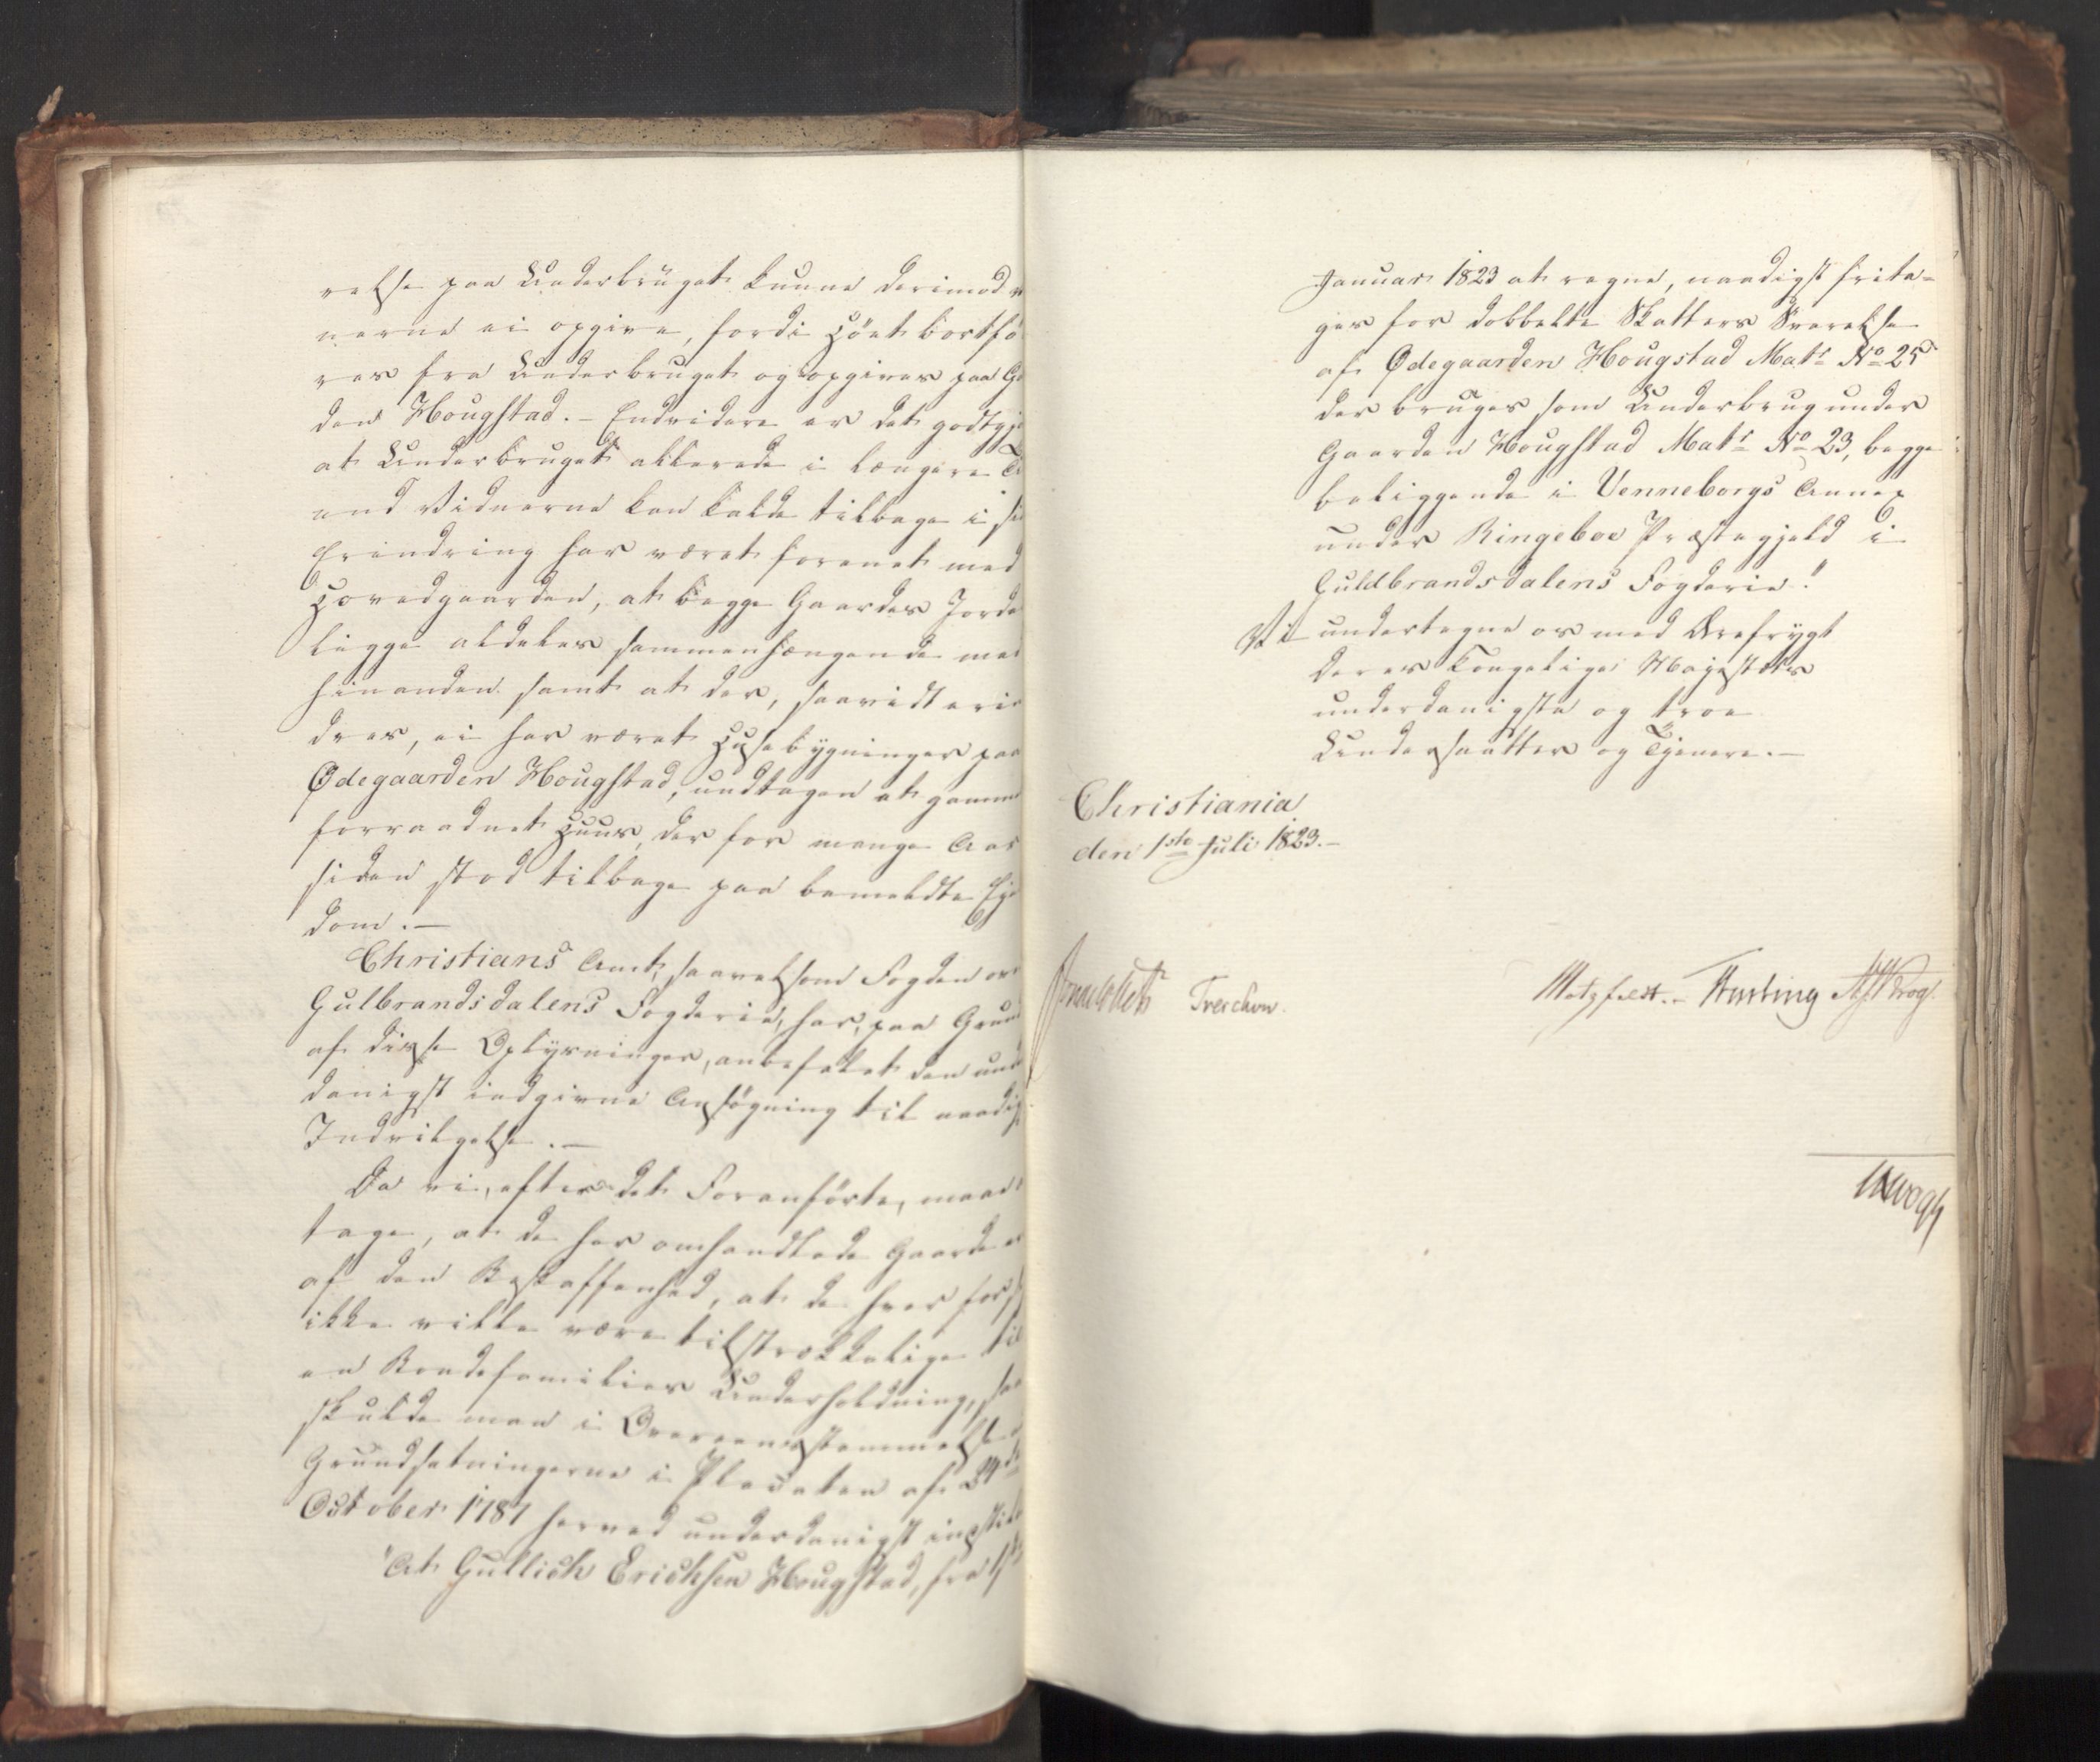 relse paa Underbruget kunne derimod
nerne ei opgive, fordi Höet bortfö
res fra Underbruget og opgives paa G
den Hougstad. – Endvidere er det godtgj
at Underbruget allerede i længere T
end Vidnerne kan kalde tilbage i si
Erindring har været forenet med
Hovedgaarden, at begge Gaardes Jorde
ligge aldeles sammenhængende med
hinanden samt at der, saavidt erin
dres, ei har været Husebygninger paa
Ødegaarden Hougstad, undtagen et gamme
forraadnet Huus, der for mange Aar
siden stod tilbage paa bemeldte Eje
dom. –
Christians Amt, saavelsom Fogden ov
Gulbrandsdalens Fogderie, har, paa Grund
af disse Oplysninger, anbefalet den und
danigst indgivne Ansögning til naadig
Indvilgelse. –
Da vi, efter det Foranförte, maae
tage, at de her omhandlede Gaarde er
af den Beskaffenhed, at de hver for si
ikke ville være tilstrækkelige til
en Bondefamilies Underholdning, saa
skulde man i Overeensstemmelse
Grundsetningerne i Placaten af 24de
October 1787 herved underdanigst instil
"At Gullich Erichsen Hougstad, fra 1ste
Januar 1823 at regne, naadigst frita-
ges for dobbelte Skatters Svarelse
af Ødegaarden Hougstad Matr No 25
der bruges som Underbrug under
Gaarden Hougstad Matr No 23, begge
beliggende i Venneborgs Annex
under Ringeboe Præstegjeld i
Guldbrandsdalens Fogderie."
Vi undertegne os med Ærefrygt
Deres Kongelige Majestæts
underdanigste og troe
Undersaatter og Tjenere. –
Christiania
den 1ste Juli 1823. –
Sommerhielm Treschow. Motzfeldt. – Hersleb Krog.
LKrogh